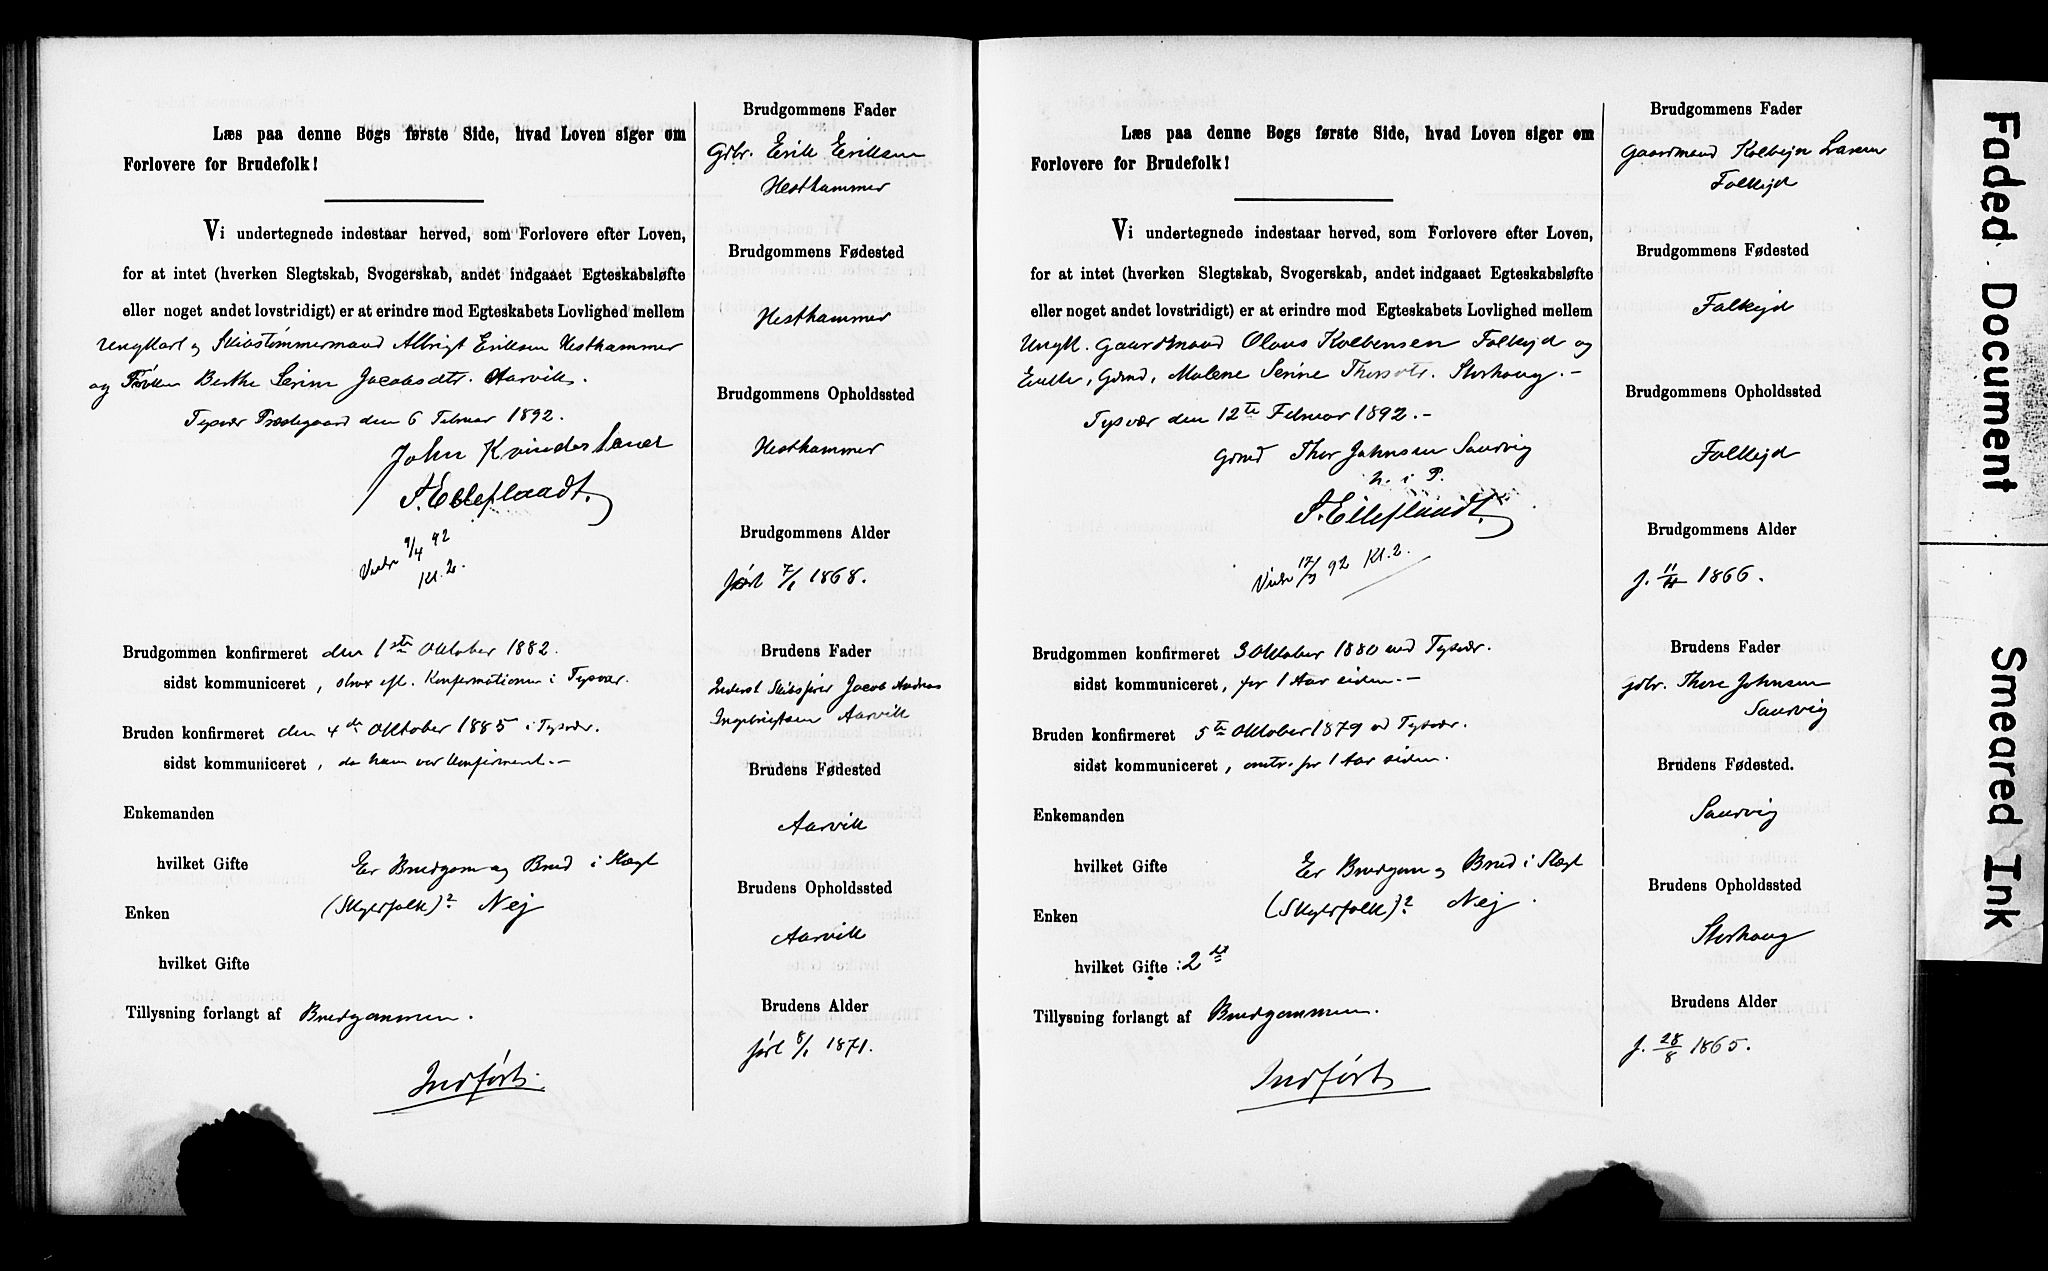 Læs paa denne Bogs første Side, hvad Loven siger om
Forlovere for Brudefolk!
Vi undertegnede indestaar herved, som Forlovere efter Loven,
for at intet (hverken Slegtskab, Svogerskab, andet indgaaet Egteskabsløfte
eller noget andet lovstridigt) er at erindre mod Egteskabets Lovlighed mellem
Ungkarl og Skibstømmermand Albrigt Eriksen Hesthammer
og Frøken Berthe Serine Jacobsdtr. Aarvik.
Tysvær Præstegaard den 6 Februar 1892.
John Kvindesland
S. Elleflaadt.
Viede 9/4 92
Kl. 2.
Brudgommen konfirmeret den 1ste Oktober 1882.
sidst kommuniceret, strax eft. Konfirmationen i Tysvær.
Bruden konfirmeret den 4de Oktober 1885 i Tysvær.
sidst kommuniceret, da hun var konfirmeret.-
Enkemanden
hvilket Gifte
Er Brudgom og Brud i Slægt
(Skyldfolk)? Nej
Enken
hvilket Gifte
Tillysning forlangt af Brudgommen.
Indført.
Brudgommens Fader
Gdbr. Erik Eriksen
Hesthammer
Brudgommens Fødested
Hesthammer
Brudgommens Opholdssted
Hesthammer
Brudgommens Alder
født 7/1 1868.
Brudens Fader
Inderst Skibsfører Jacob Andreas
Ingebrigtsen Aarvik
Brudens Fødested
Aarvik
Brudens Opholdssted
Aarvik
Brudens Alder
født 8/1 1871.
Læs paa denne Bogs første Side, hvad Loven siger om
Forlovere for Brudefolk!
Vi undertegnede indestaar herved, som Forlovere efter Loven,
for at intet (hverken Slegtskab, Svogerskab, andet indgaaet Egteskabsløfte
eller noget andet lovstridigt) er at erindre mod Egteskabets Lovlighed mellem
Ungk. Gaardmand Olaus Kolbensen Falkejd og
Enke, Gdmd, Malene Serine Thorsdtr. Storhaug.-
Tysvær den 12te Februar 1892.-
Gdmd Thor Johnsen Sandvig
m. i P.
S. Elleflaadt.
Viede 17/3 92 Kl. 2.
Brudgommen konfirmeret 3 Oktober 1880 ved Tysvær.
sidst kommuniceret, for 1 Aar siden.-
Bruden konfirmeret 5te Oktober 1879 ved Tysvær.
sidst kommuniceret, omtr. for 1 Aar siden.
Enkemanden
hvilket Gifte
Er Brudgom og Brud i Slægt
(Skyldfolk)? Nej.
Enken
hvilket Gifte : 2det
Tillysning forlangt af Brudgommen.
Indført
Brudgommens Fader
Gaardmand Kolbejn Larsen
Falkejd
Brudgommens Fødested
Falkejd
Brudgommens Opholdssted
Falkejd
Brudgommens Alder
f. 1866.
Brudens Fader
gdbr. Thore Johnsen
Sandvig
Brudens Fødested.
Sandvig
Brudens Opholdssted
Storhaug
Brudens Alder
f. 28/8 1865.
Faded Document
Smeared Ink